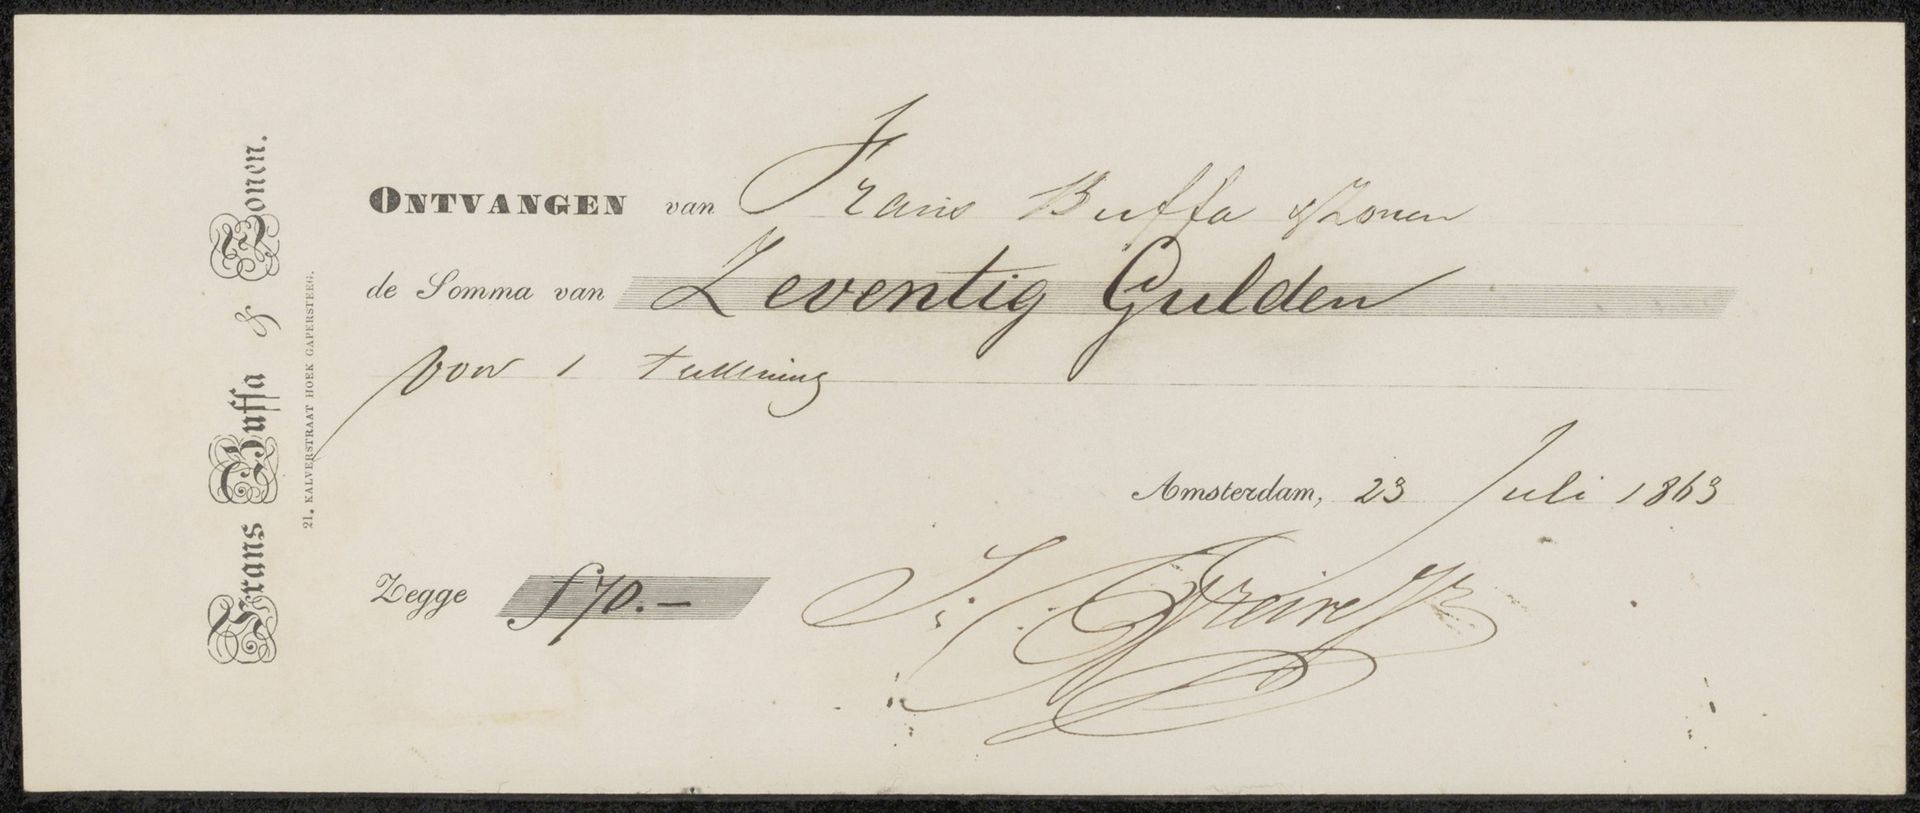 Frans Buffa & Zonen.
21, KALVERSTRAAT HOEK GAPERSTEEG.
ONTVANGEN van Frans Buffa & Zonen
de Somma van Zeventig Gulden
voor 1 tekening
Amsterdam, 23 Juli 1863
Zegge f70.—